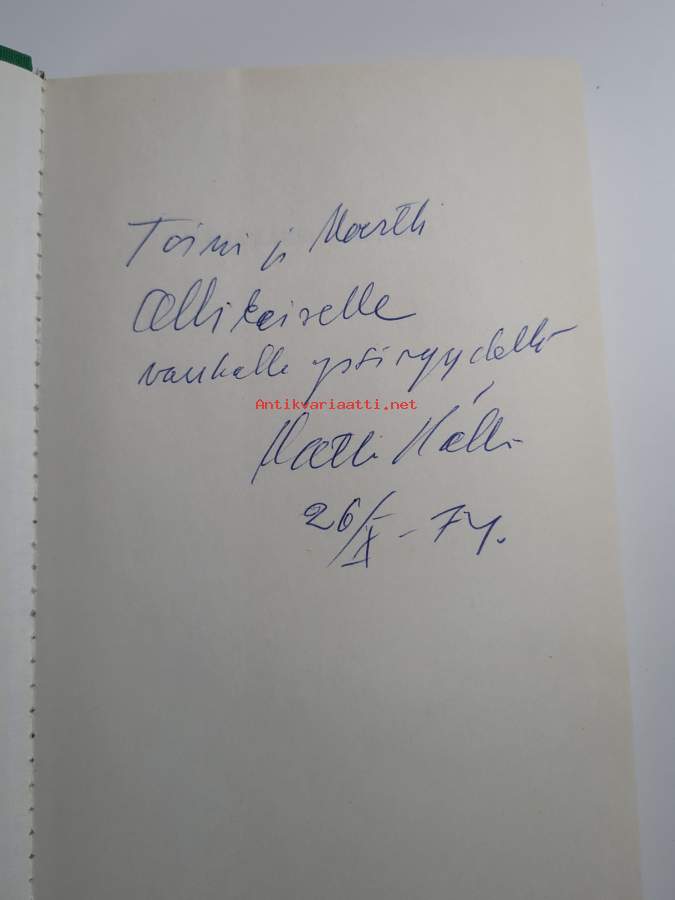 Toini ja Martti
Ollikaiselle
vanhalla ystävyydellä
Antikvariaatti.net
Matti Hälli
26/X -74.